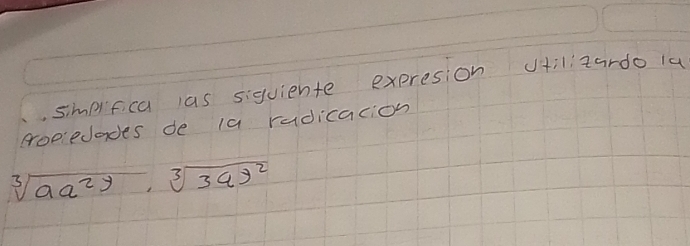 . . simplifica las siguiente expresion Utilizardo la
Propiedades de la radicacion
∛aa²y . ∛3ay²